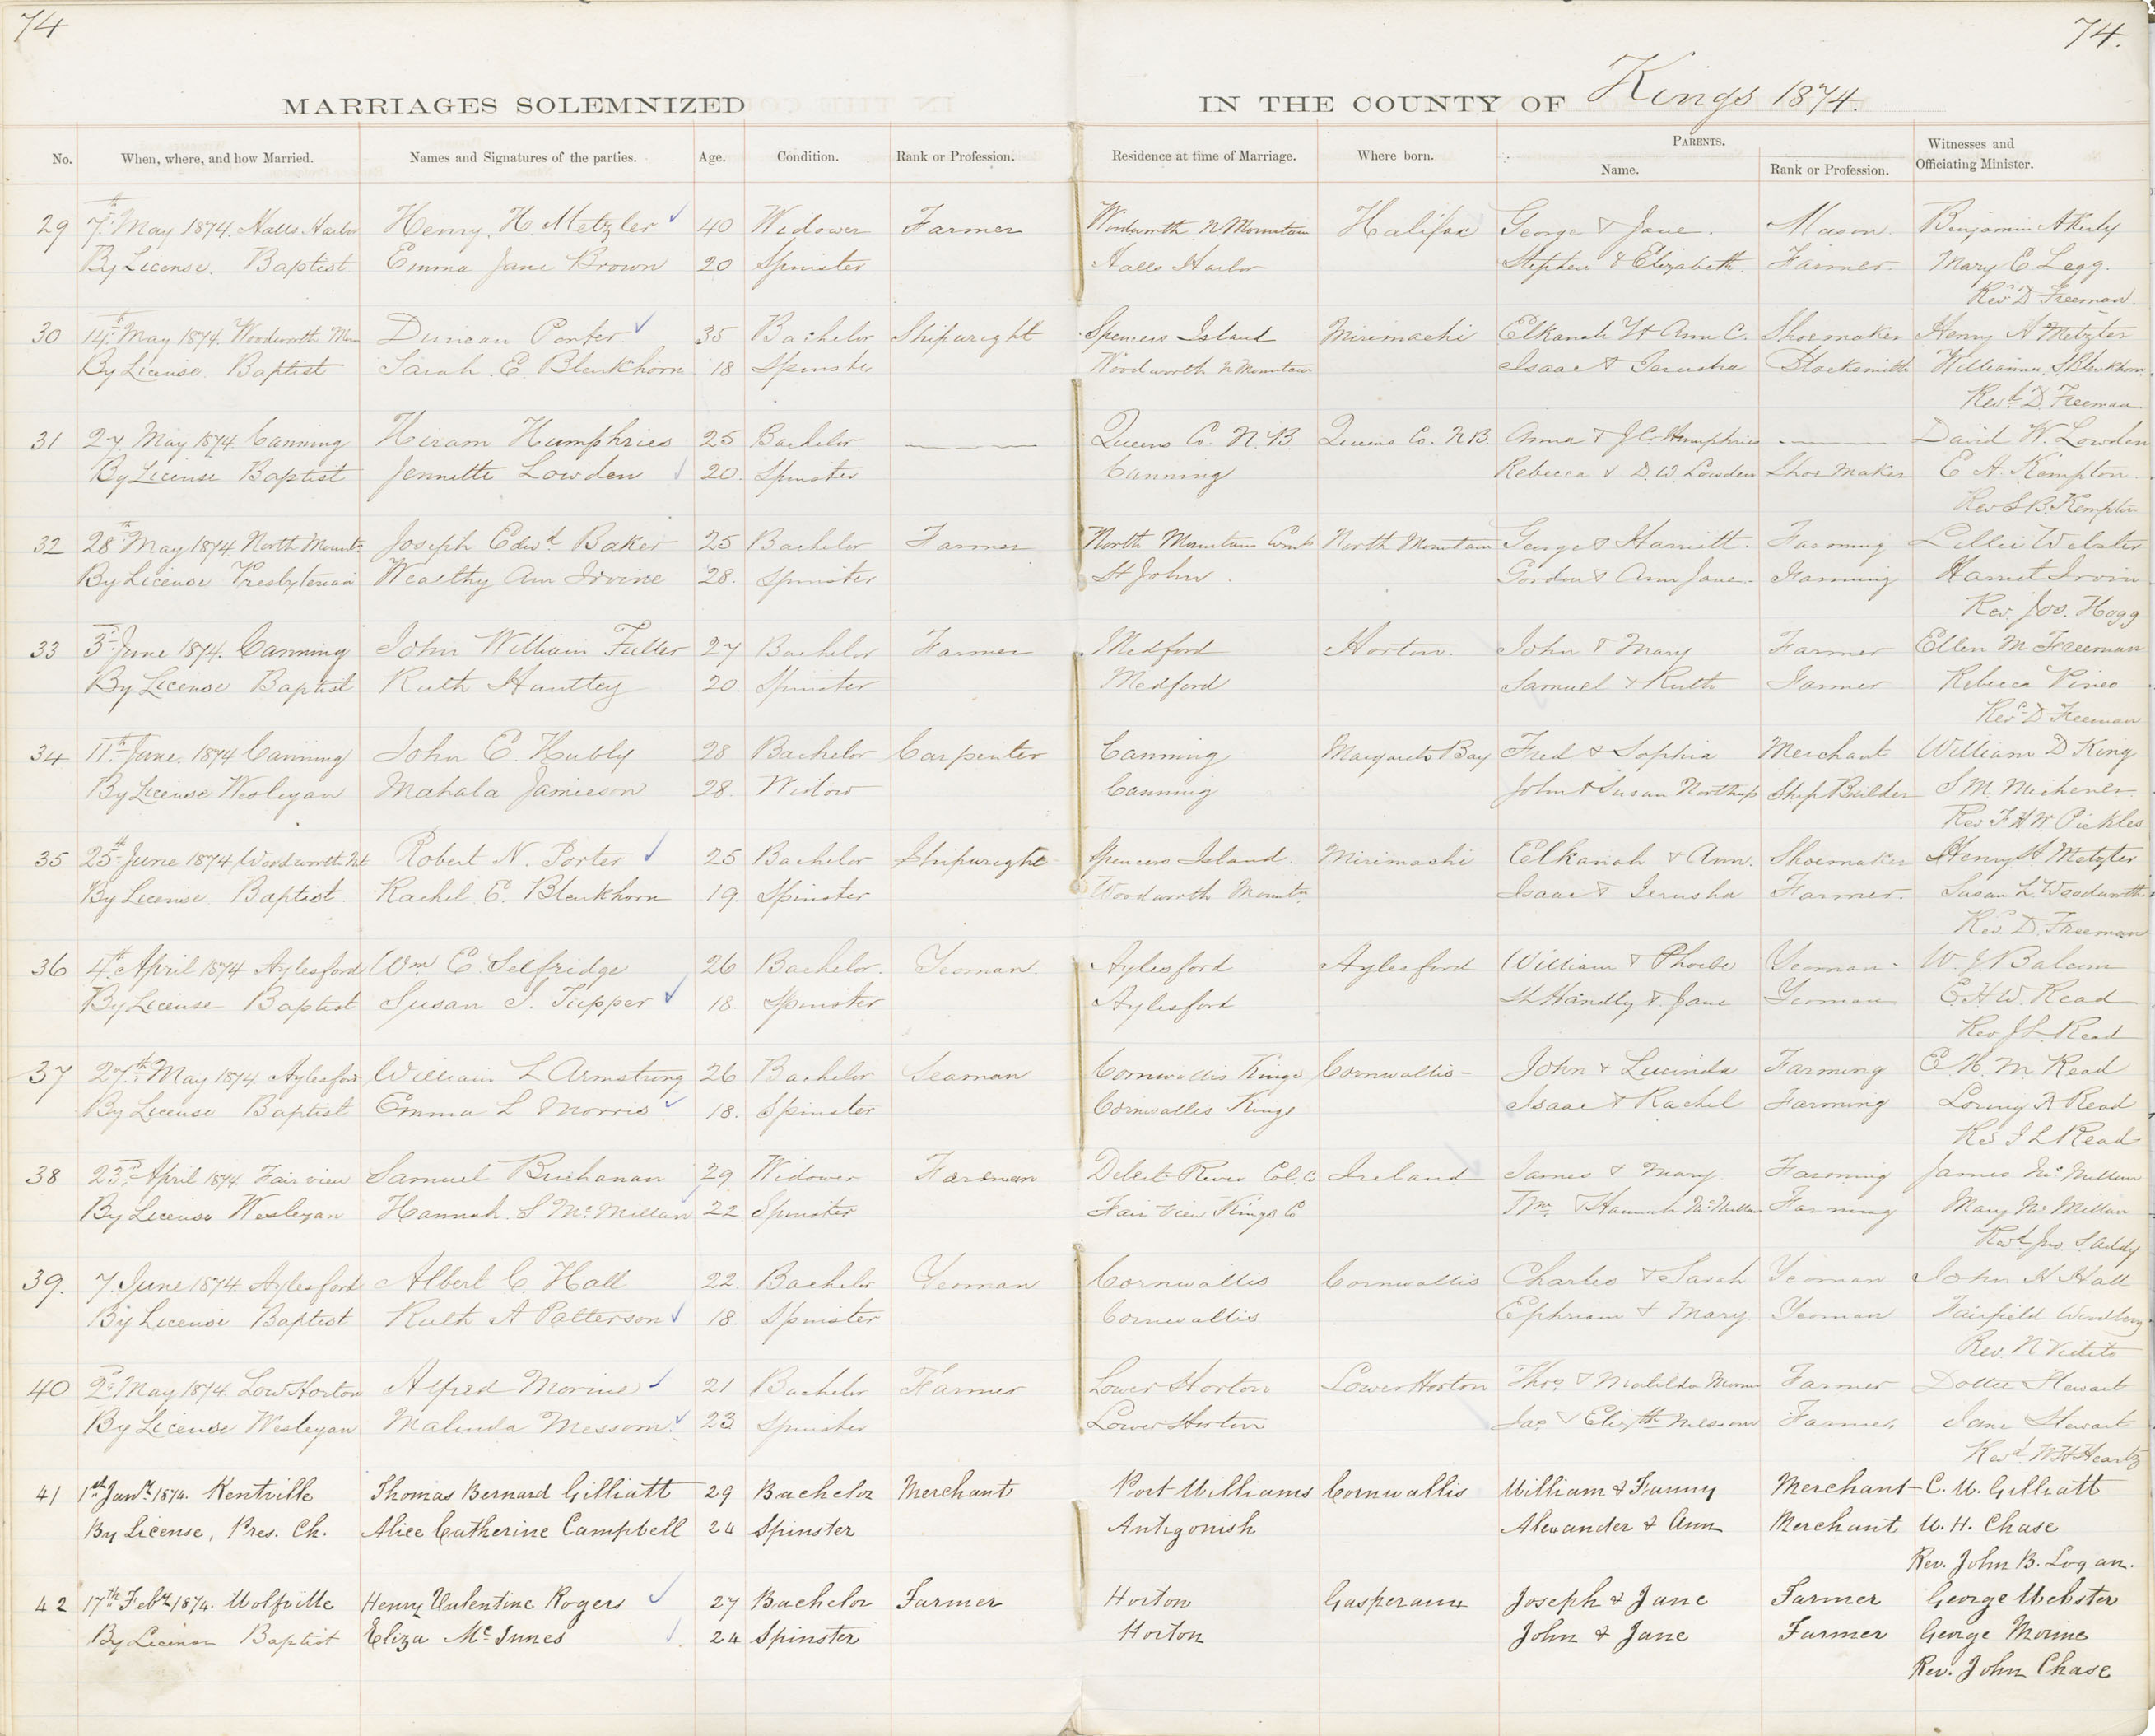 74
74.
MARRIAGES SOLEMNIZED IN THE COUNTY OF Kings 1874.
No. When, where, and how Married. Names and Signatures of the parties. Age. Condition. Rank or Profession. Residence at time of Marriage. Where born. PARENTS. Name. Rank or Profession. Witnesses and Officiating Minister.
29 7th May 1874. Halls Harbor Henry. H. Metzler 40 Widower Farmer Woodworth N Mountain Halifax George & Jane. Mason. Benjamin Akerly
By License. Baptist. Emma Jane Brown 20 Spinster Halls Harbor Stephen & Elizabeth. Farmer. Mary E Legg.
Revd D Freeman.
30 14th May 1874. Woodworth Duncan Porter. 35 Bachelor Shipwright Spencers Island Mirimachi Elkanah & Ann C. Shoemaker Henry H Metzler
By License. Baptist Sarah. E. Blenkhorn 18 Spinster Woodworth N Mountain Isaac & Jerusha Blacksmith S Blenkhorn
Revd. D. Freeman
31 27 May 1874. Canning Hiram Humphries 25 Bachelor. Queens Co. N. B. Queens Co. N B. Anna & J. C. Humphries David W. Lowden
By License Baptist Jennette Lowden 20. Spinster Canning Rebecca & D. W. Lowden Shoe Maker E A. Kempton.
Rev S B. Kempton
32 28th May 1874 North Mount. Joseph Edwd. Baker 25 Bachelor Farmer North Mountain North Mountain George & Harriett. Farming Lillie Webster
By License Presbyterian Wealthy Ann Irvine 28. Spinster St John. Gordon & Ann Jane. Farming Harriet Irvin
Rev. Jos. Hogg
33 3d June 1874. Canning John William Fuller 27 Bachelor Farmer Medford Horton. John & Mary Farmer Ellen M Freeman
By License Baptist Ruth Huntley 20. Spinster Medford Samuel & Ruth Farmer Rebecca Pineo
Revd D Freeman
34 11th June. 1874 Canning John E. Hubly 28 Bachelor Carpenter Canning Margarets Bay Fred. & Sophia Merchant William D King
By License Wesleyan Mahala Jamieson 28. Widow Canning John & Susan Northup Ship Builder S M.
Rev F H W. Pickles
35 25th June 1874 Woodworth Mt Robert N. Porter 25 Bachelor Shipwright Spencers Island. Mirimachi Elkanah & Ann. Shoemaker Henry H Metzler
By License. Baptist. Rachel. E. Blenkhorn 19. Spinster Woodworth Mountn. Isaac & Jerusha Farmer. Susan L. Woodworth
Rev. D. Freeman
36 4th April 1874 Aylesford Wm E. Selfridge 26 Bachelor. Yeoman. Aylesford Aylesford William & Phoebe Yeoman. W. J. Balcom
By License Baptist Susan S. Tupper 18. Spinster Aylesford Handly & Jane Yeoman E. H W. Read
Rev J L. Read
37 27th May 1874. Aylesford William L Armstrong 26 Bachelor Seaman Cornwallis Kings Cornwallis John & Lucinda Farming E H. M. Read
By License Baptist Emma L Morris 18. Spinster Cornwallis Kings Isaac & Rachel Farming Loring A Read
Rev J L Read
38 23d April 1874. Fair view Samuel Buchanan 29 Widower Farman Debert River Col. C Ireland James & Mary. Farming James McMillan
By License Wesleyan Hannah. S McMillan 22 Spinster Fair View Kings Co Wm. & Hannah McMillan Farming Mary McMillan
Revd Jno. S. Addy
39. 7 June 1874. Aylesford Albert C. Hall 22. Bachelor Yeoman Cornwallis Cornwallis Charles & Sarah Yeoman John H Hall
By License Baptist Ruth A Patterson 18. Spinster Cornwallis Ephriam & Mary Yeoman Fairfield Woodbury
Rev. N Vidito
40 2d May 1874. Low Horton Alfred Morine 21 Bachelor Farmer Lower Horton Lower Horton Thos. & Matilda Morine Farmer Stewart
By License Wesleyan Malinda Messom. 23 Spinster Lower Horton Jas. & Elizth Messom Farmer. Jane Stewart
Revd W H Heartz
41 1st Jany. 1874. Kentville Thomas Bernard Gilliatt 29 Bachelor Merchant Port Williams Cornwallis William & Fanny Merchant C. W. Gilliatt
By License, Pres. Ch. Alice Catherine Campbell 24 Spinster Antigonish Alexander & Ann Merchant W. H. Chase
Rev. John B. Logan.
42 17th Feby 1874. Wolfville Henry Valentine Rogers 27 Bachelor Farmer Horton Gasperaux Joseph & Jane Farmer George Webster
By License Baptist Eliza McInnes 24 Spinster Horton John & Jane Farmer George Morine
Rev. John Chase